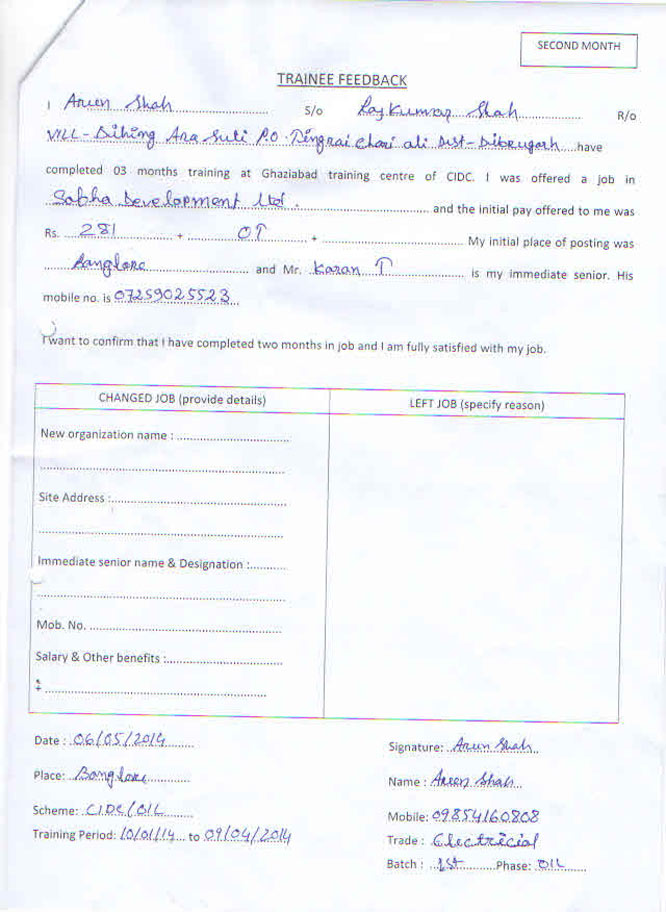 SECOND MONTH
TRAINEE FEEDBACK
I Arun Shah S/o Raj Kumar Shah R/o
VILL - Dihing Ara Suti P.O. Tingrai Chari ali Dist - Dibrugarh have
completed 03 months training at Ghaziabad training centre of CIDC. I was offered a job in
Sobha Development Ltd. and the initial pay offered to me was
Rs. 281 + OT + My initial place of posting was
Banglore and Mr. Karan T is my immediate senior. His
mobile no. is 07259025523
I want to confirm that I have completed two months in job and I am fully satisfied with my job.
CHANGED JOB (provide details)
LEFT JOB (specify reason)
New organization name :
Site Address :
Immediate senior name & Designation :
Mob. No.
Salary & Other benefits :
Date : 06/05/2014
Place: Banglore
Scheme: CIDC/OIL
Training Period: 10/01/14 to 09/04/2014
Signature: Arun Shah
Name : Arun Shah
Mobile: 09854160808
Trade : Electricial
Batch : 1st Phase: OIL